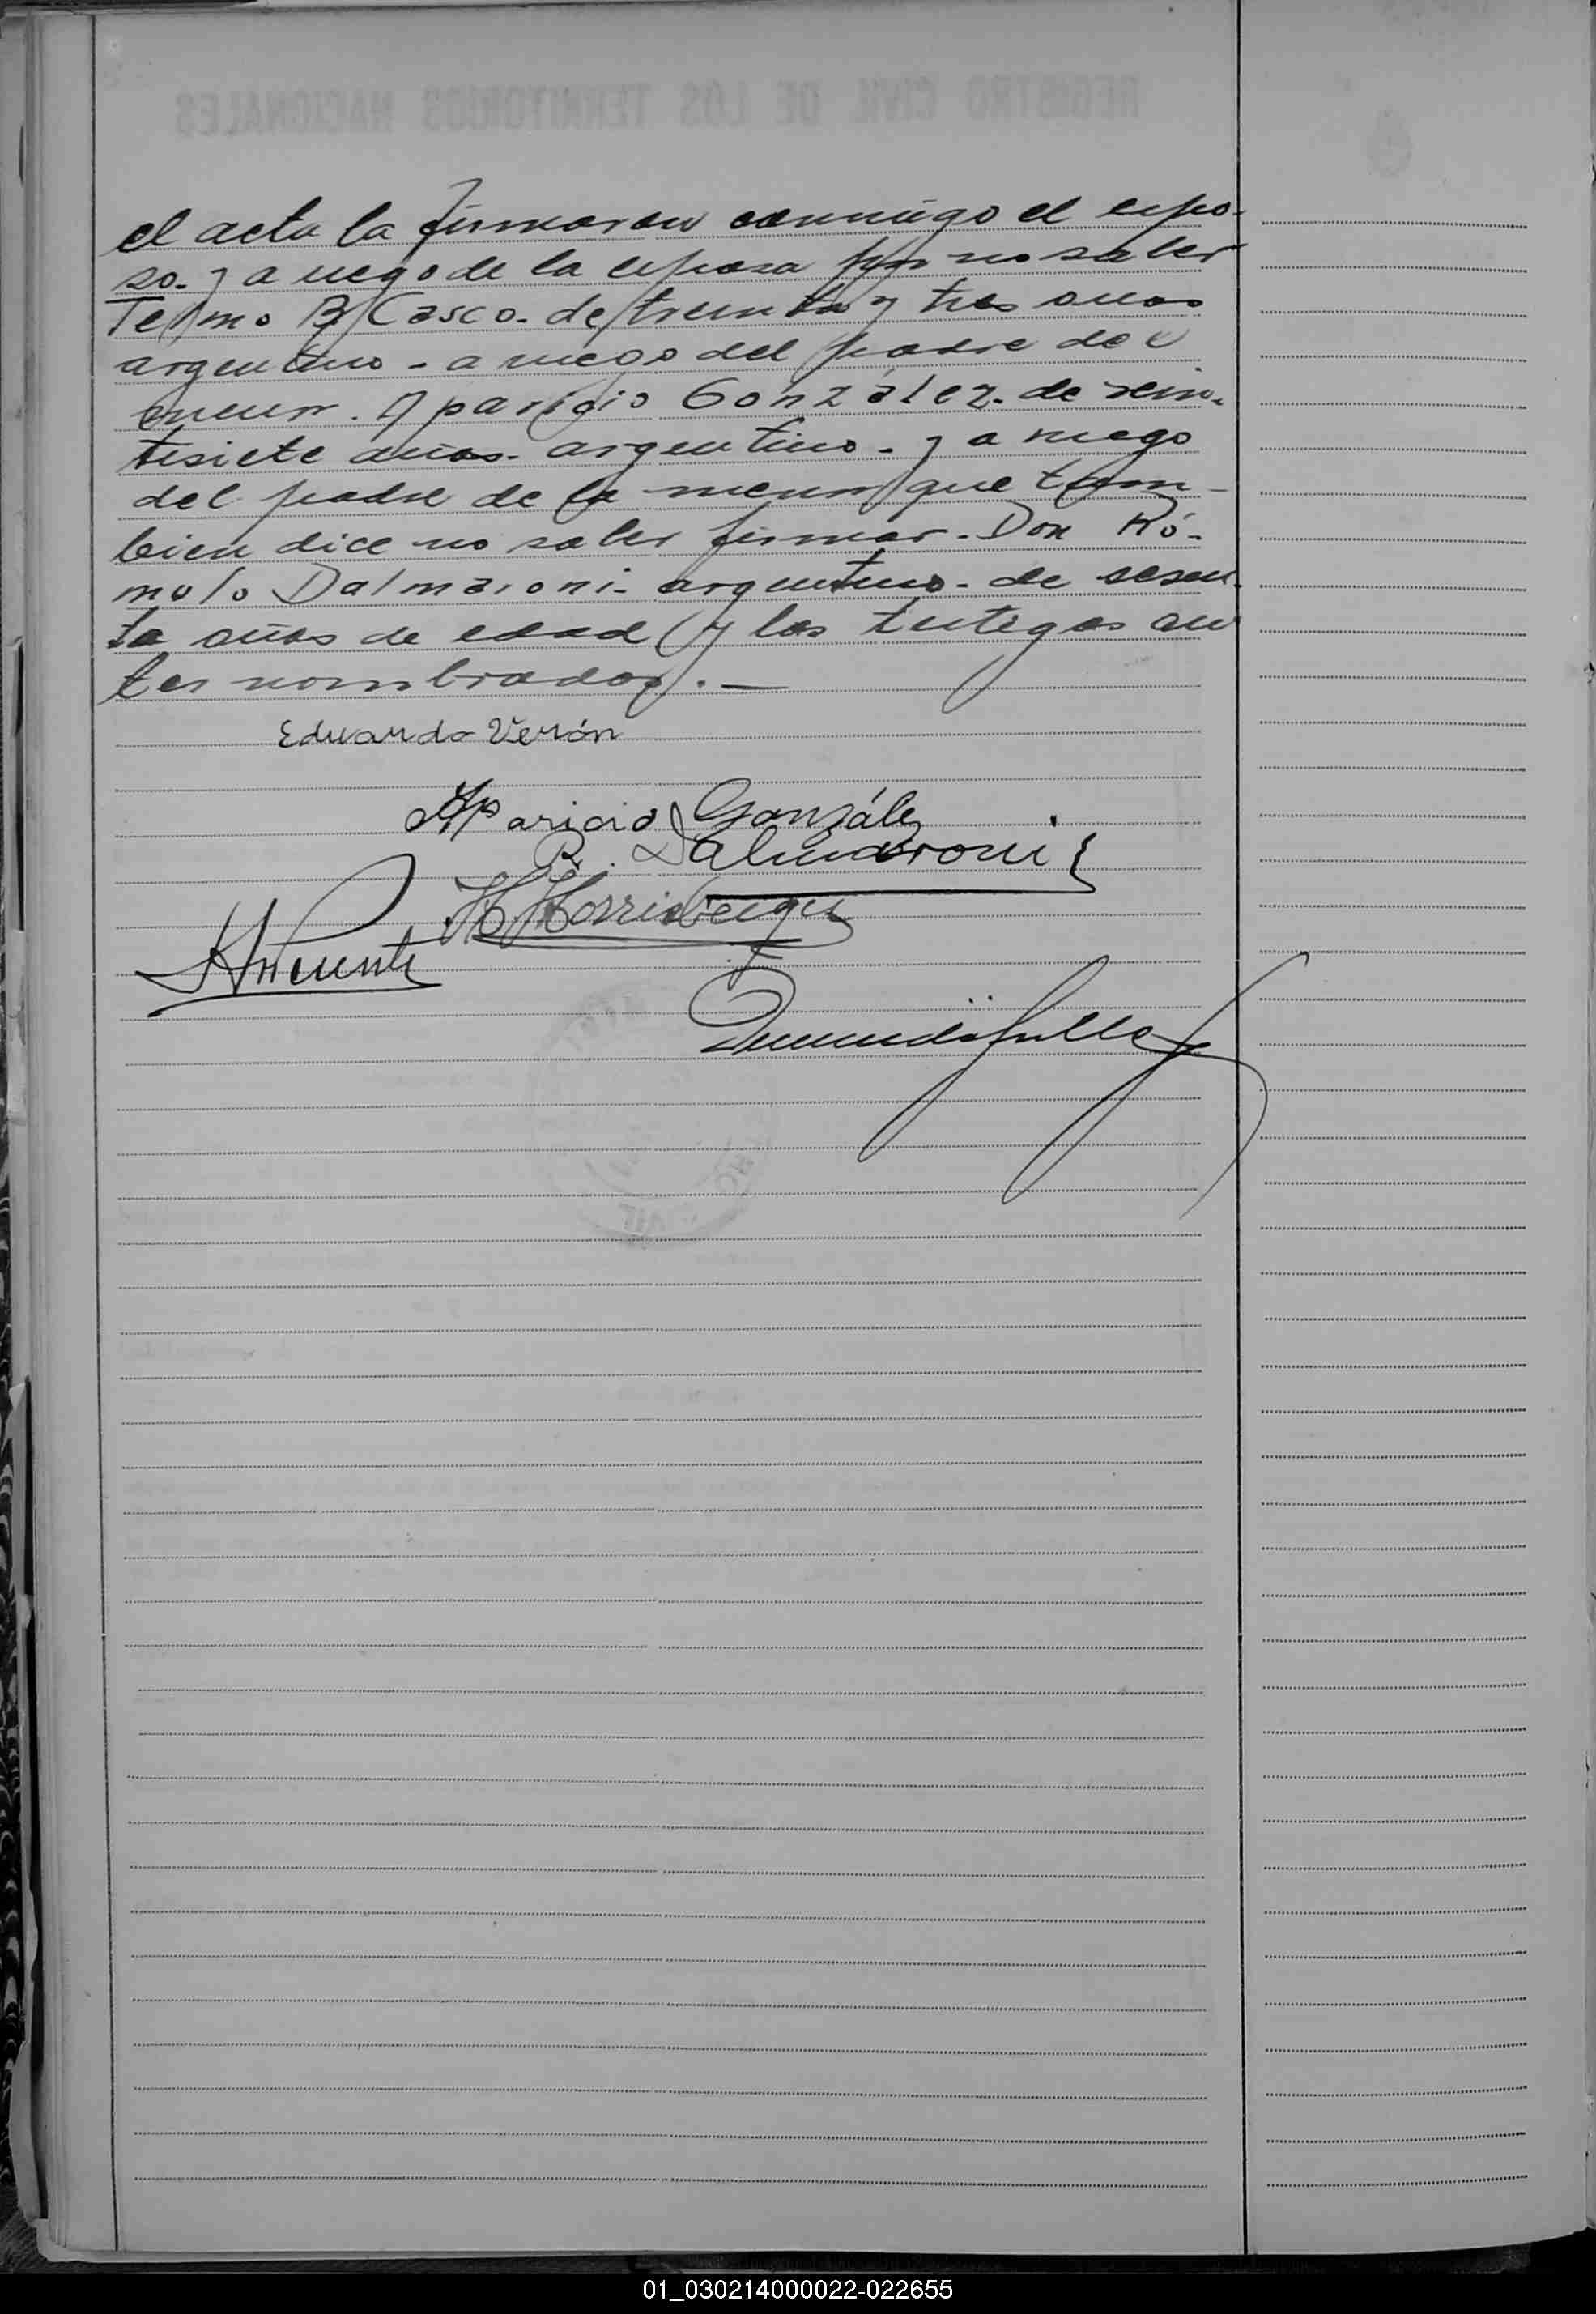 el acta la firmaron conmigo el espo-
so. y a ruego de la esposa por no saber
Telmo B Casco. de treinta y tres años
argentino - a ruego del padre del
menor. Aparicio González. de vein-
tisiete años. argentino. y a ruego
del padre de la menor que tam-
bien dice no saber firmar. Don Ró-
mulo Dalmaroni. argentino. de sesen-
ta años de edad y los testigos an
tes nombrados. —
Eduardo Verón
Aparicio González
R. Dalmaroni
01_030214000022-022655